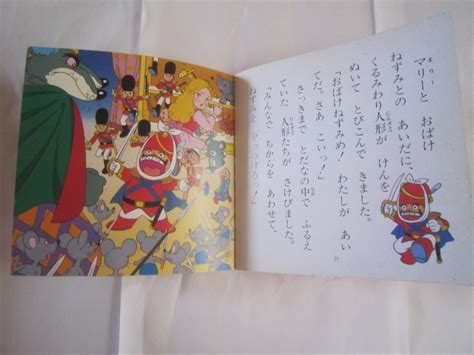 マリーと おばけ
ねずみとの あいだに、
くるみわり人形が けんを
ぬいて とびこんで きました。
「おばけねずみめ! わたしが あい
てだ。さあ こいっ!」
さっきまで とだなの中で ふるえ
ていた 人形たちが さけびました。
「みんなで ちからを あわせて、
ねずみを やっつけろっ!」